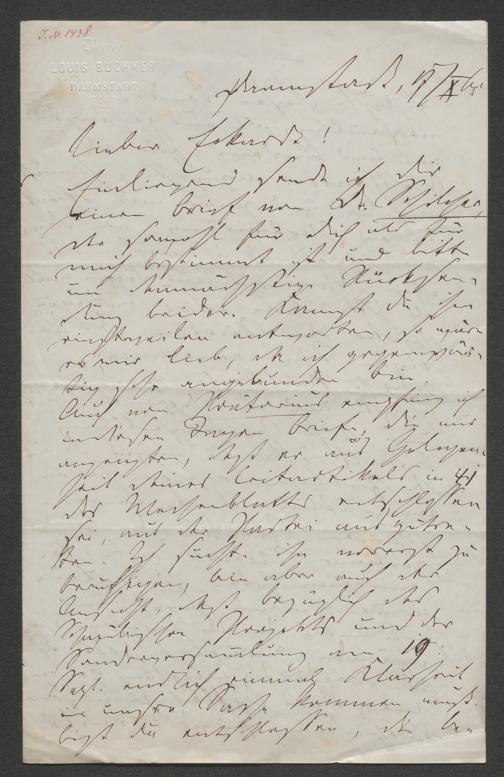 J.N. 1438
LOUIS BÜCHNER
DARMSTADT
Darmstadt, 17/X 65
Lieber Eckardt!
Einliegend sende ich dir
einen Brief von Dr. Schilcher,
der sowohl für dich als für
mich bestimmt ist und bitte
um demnächstige Rücksen-
dung beider. Kannst du ihm
einstweilen antworten, so wäre
es mir lieb, da ich gegenwär-
tig sehr angebunden bin
Auch von Prätorius empfing ich
in diesen Tagen Briefe, die mir
anzeigten, daß er aus Gelegen-
heit deines Leitartikels in 41
des Wochenblatts entschlossen
sei, aus der Partei auszutre-
ten. Ich suchte ihn vorerst zu
beruhigen, bin aber auch der
Ansicht, daß bezüglich des
Projekts und der
Sonderversammlung am 19
Sept. endlich einmal Klarheit
in unsre Sache kommen muß.
bist du entschlossen, die be-